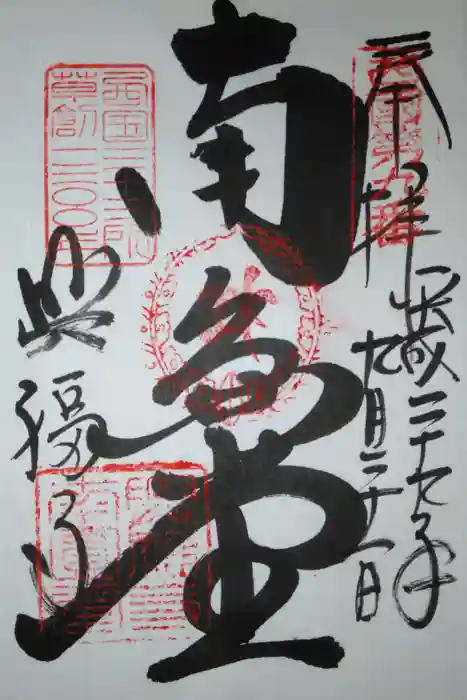 奉拝
平成二十九年
九月二十一日
南圓堂
西国三十三所
草創一三〇〇年
興福寺